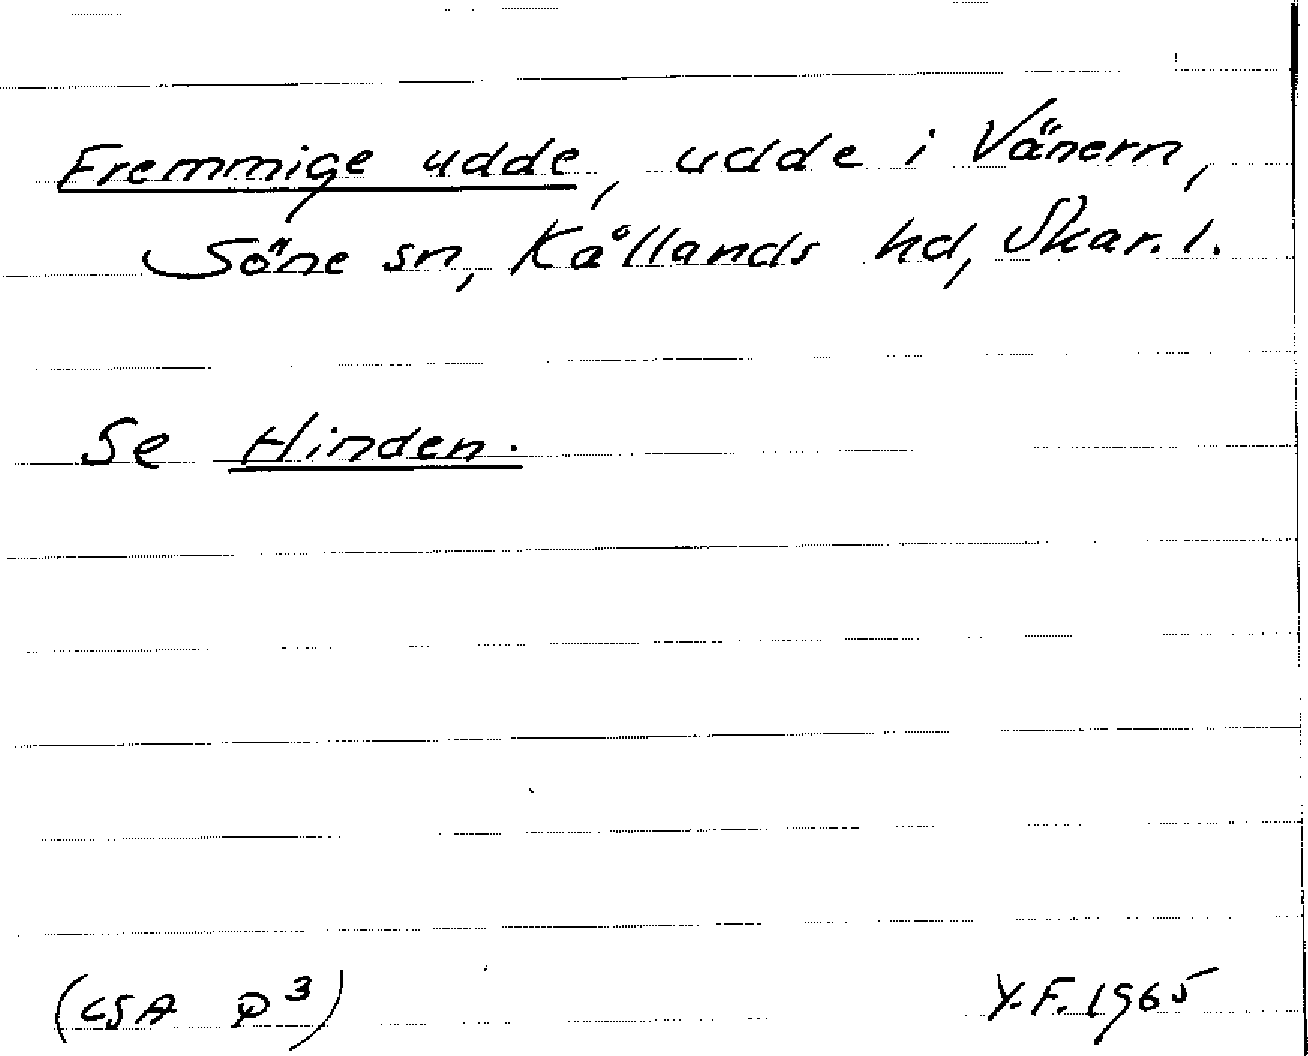 Fremmige udde, udde i Vänern,
Söne sn, Kållands hd, Skar. l.
Se Hinden.
(LSA P³) Y.F. 1965